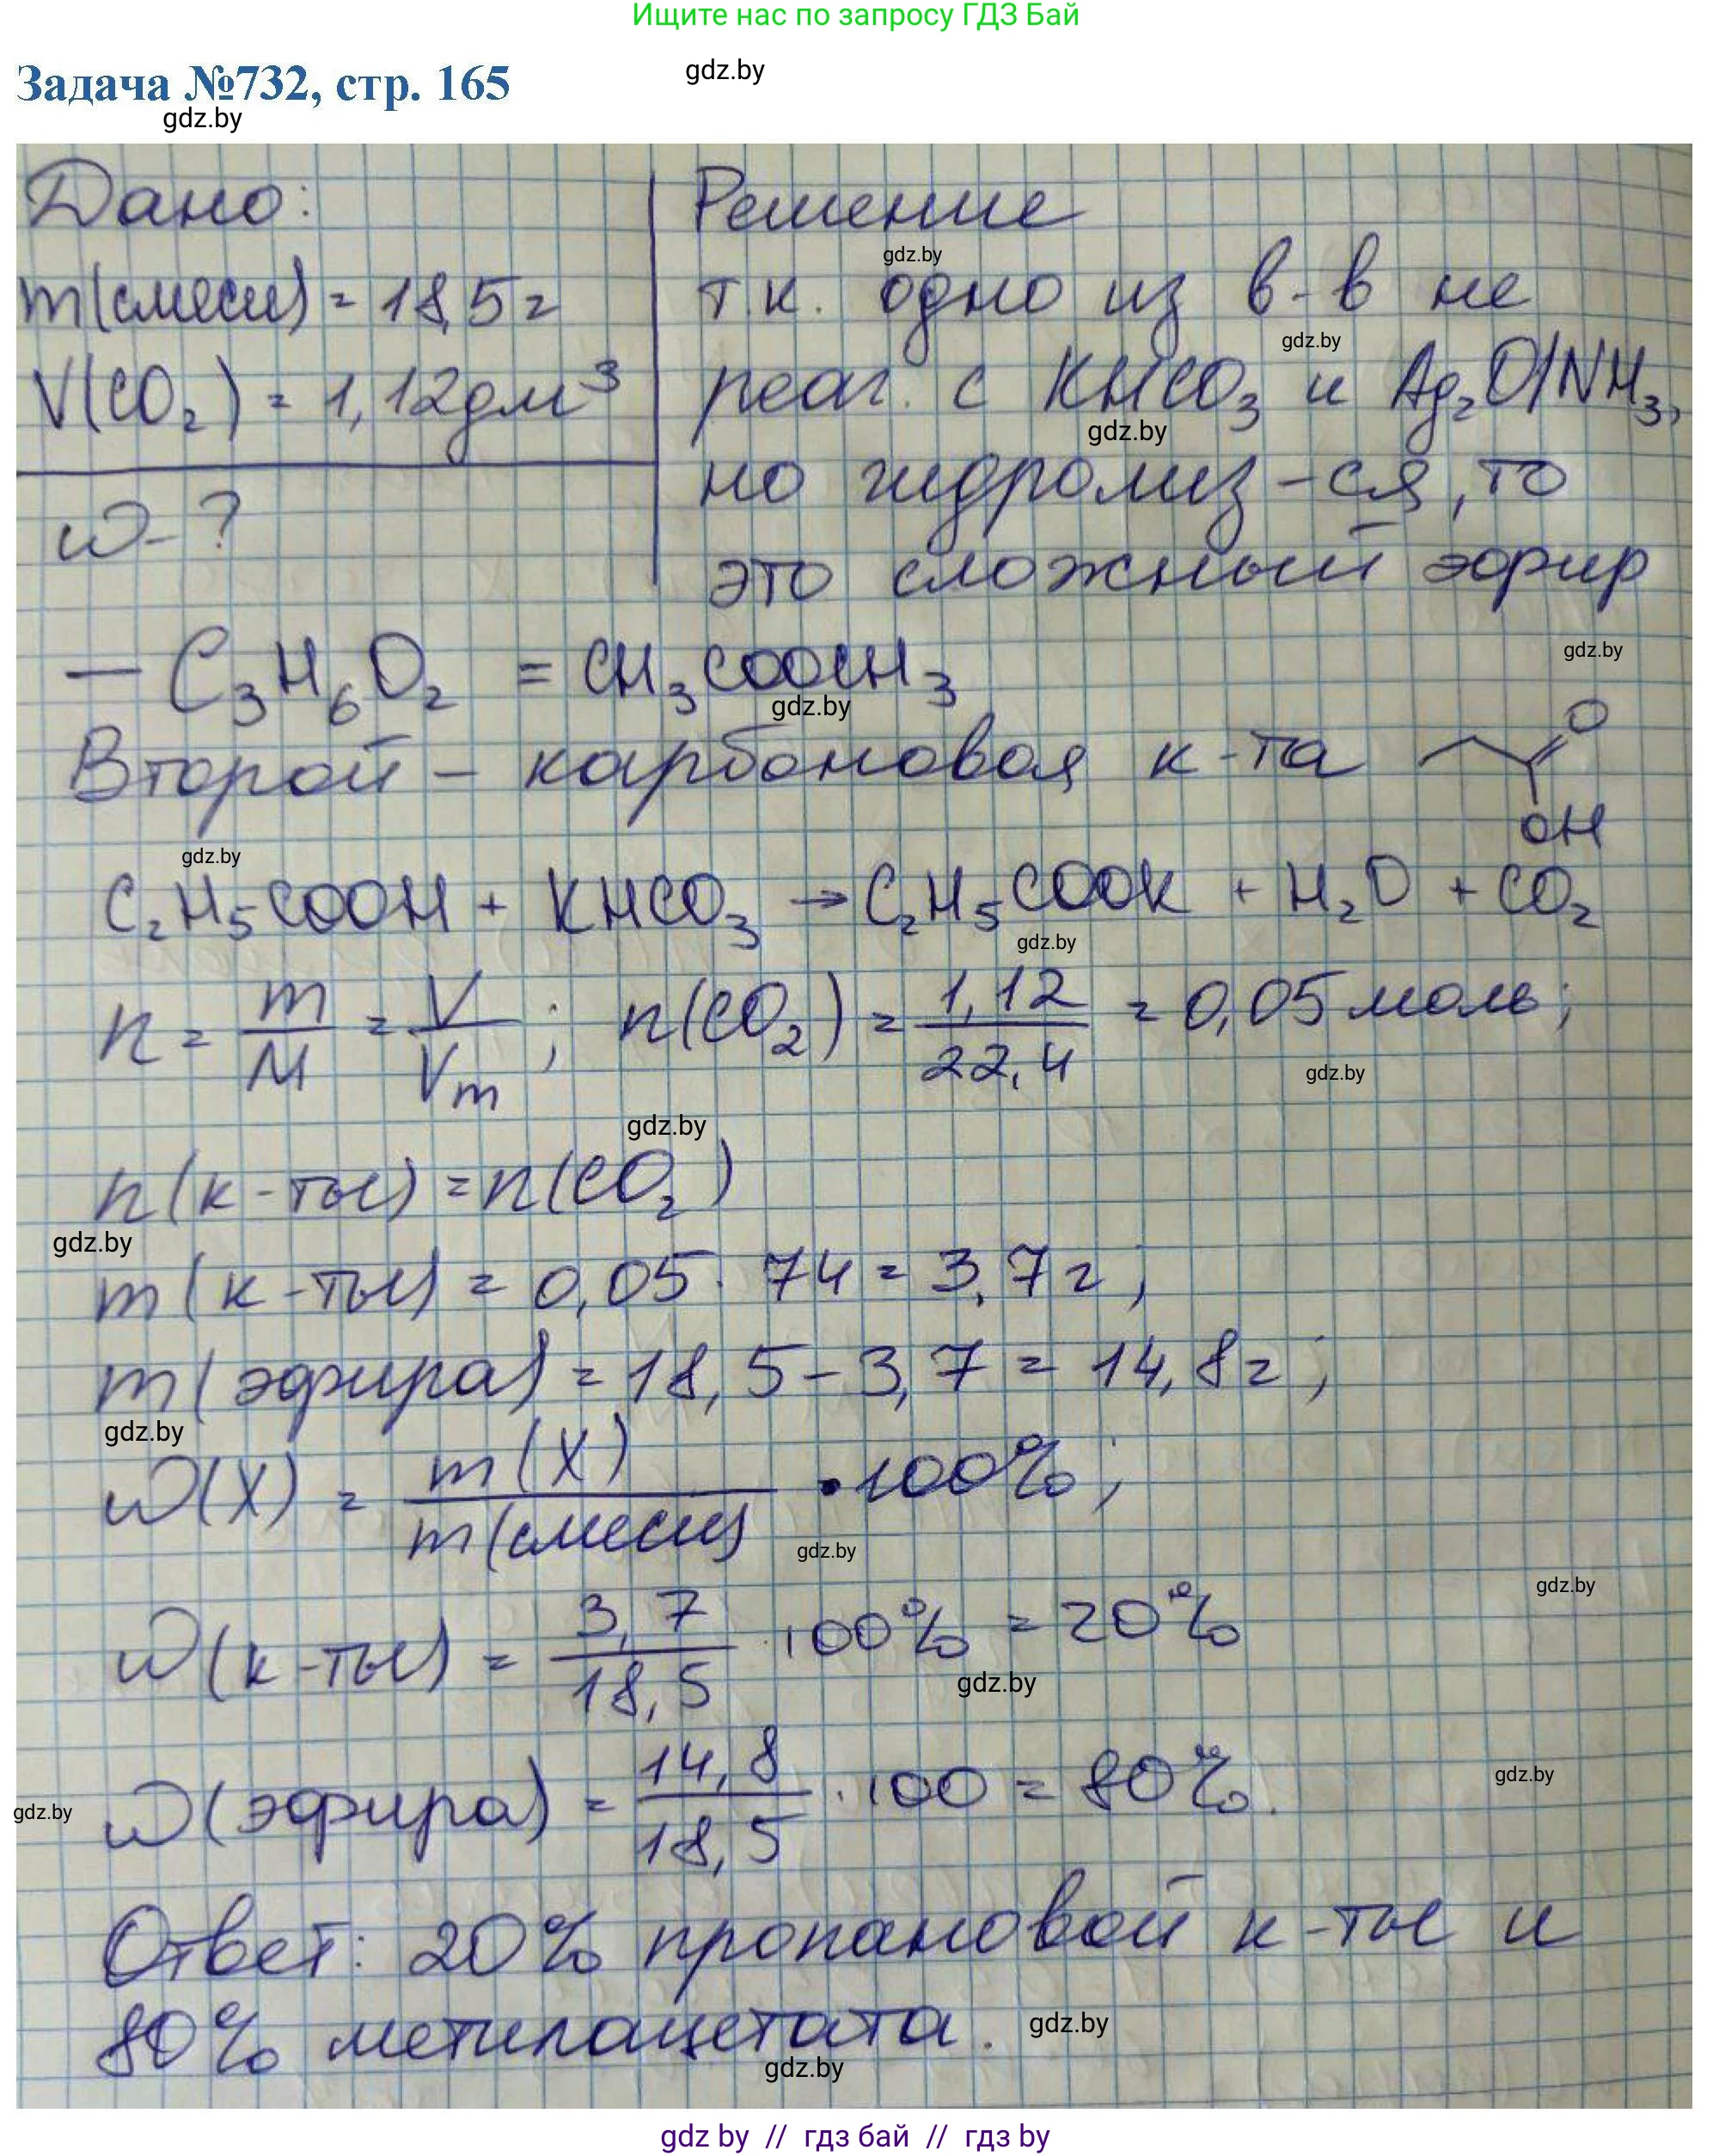 Ищите нас по запросу ГДЗ Бай
Задача №732, стр. 165
gdz.by
gdz.by
Дано:
m(смеси) = 18,5 г
V(CO₂) = 1,12 дм³
ω - ?
Решение
gdz.by
т.к. одно из в-в не
gdz.by
реаг. с KHCO₃ и Ag₂O/NH₃,
gdz.by
но гидролиз-ся, то
это сложный эфир
gdz.by
— C₃H₆O₂ = CH₃COOCH₃
gdz.by
Второй – карбоновая к-та
O
OH
gdz.by
C₂H₅COOH + KHCO₃ → C₂H₅COOK + H₂O + CO₂
gdz.by
n = m/M = V/Vm ; n(CO₂) = 1,12/22,4 = 0,05 моль;
gdz.by
gdz.by
n(к-ты) = n(CO₂)
gdz.by
m(к-ты) = 0,05 · 74 = 3,7 г;
m(эфира) = 18,5 – 3,7 = 14,8 г;
gdz.by
ω(X) = m(X)/m(смеси) · 100%;
gdz.by
gdz.by
ω(к-ты) = 3,7/18,5 · 100% = 20%
gdz.by
gdz.by
ω(эфира) = 14,8/18,5 · 100 = 80%.
gdz.by
Ответ: 20% пропановой к-ты и
80% метилацетата.
gdz.by
gdz.by
gdz by // гдз бай // гдз by